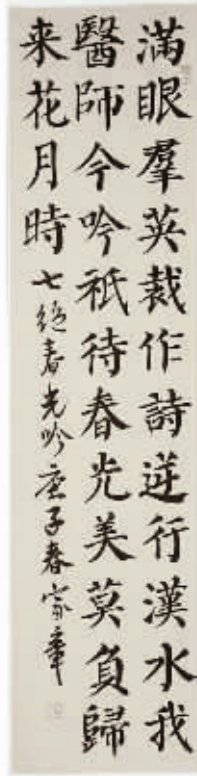 滿眼羣英裁作詩逆行漢水我
醫師今吟祇待春光美莫負歸
来花月時 七絕春光吟庚子春